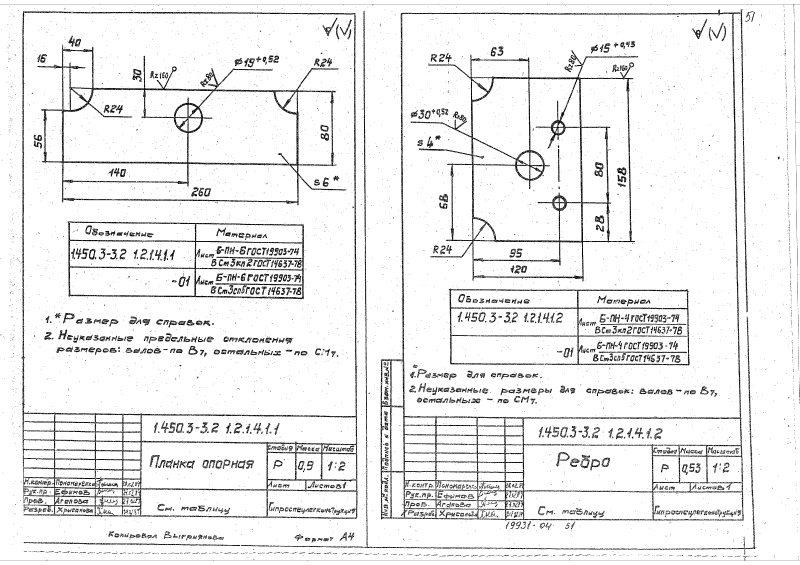 51
40
16
30
Rz160
Rz80
⌀19+0,52
R24
R24
56
80
140
s6*
260
Обозначение Материал
1.450.3-3.2 1.2.1.4.1.1 Лист Б-ПН-6 ГОСТ 19903-74
ВСт3кп2 ГОСТ 14637-78
-01 Лист Б-ПН-6 ГОСТ 19903-74
ВСт3сп5 ГОСТ 14637-78
1.*Размер для справок.
2. Неуказанные предельные отклонения
размеров: валов-по В7, остальных-по СМ7.
1.450.3-3.2 1.2.1.4.1.1
Планка опорная
Стадия Масса Масштаб
Р 0,9 1:2
Лист Листов 1
Н.контр. Пономарёва
Рук.пр. Ефимов
Пров. Агапова
Разраб. Хрисанова
См. таблицу
Копировал Выгриянова Формат А4
63
⌀15+0,43
R24
Rz80
Rz160
⌀30+0,52
Rz80
s4*
68
80
158
28
R24
95
120
Обозначение Материал
1.450.3-3.2 1.2.1.4.1.2 Лист Б-ПН-4 ГОСТ 19903-74
ВСт3кп2 ГОСТ 14637-78
-01 Лист Б-ПН-4 ГОСТ 19903-74
ВСт3сп5 ГОСТ 14637-78
1.*Размер для справок.
2. Неуказанные размеры для справок: валов-по В7,
остальных-по СМ7.
1.450.3-3.2 1.2.1.4.1.2
Ребро
Стадия Масса Масштаб
Р 0,53 1:2
Лист Листов 1
Взам.инв.№
Подпись и дата
Инв.№ подл.
Н.контр. Пономарёва
Рук.пр. Ефимов
Пров. Агапова
Разраб. Хрисанова
См. таблицу
19931-04 51